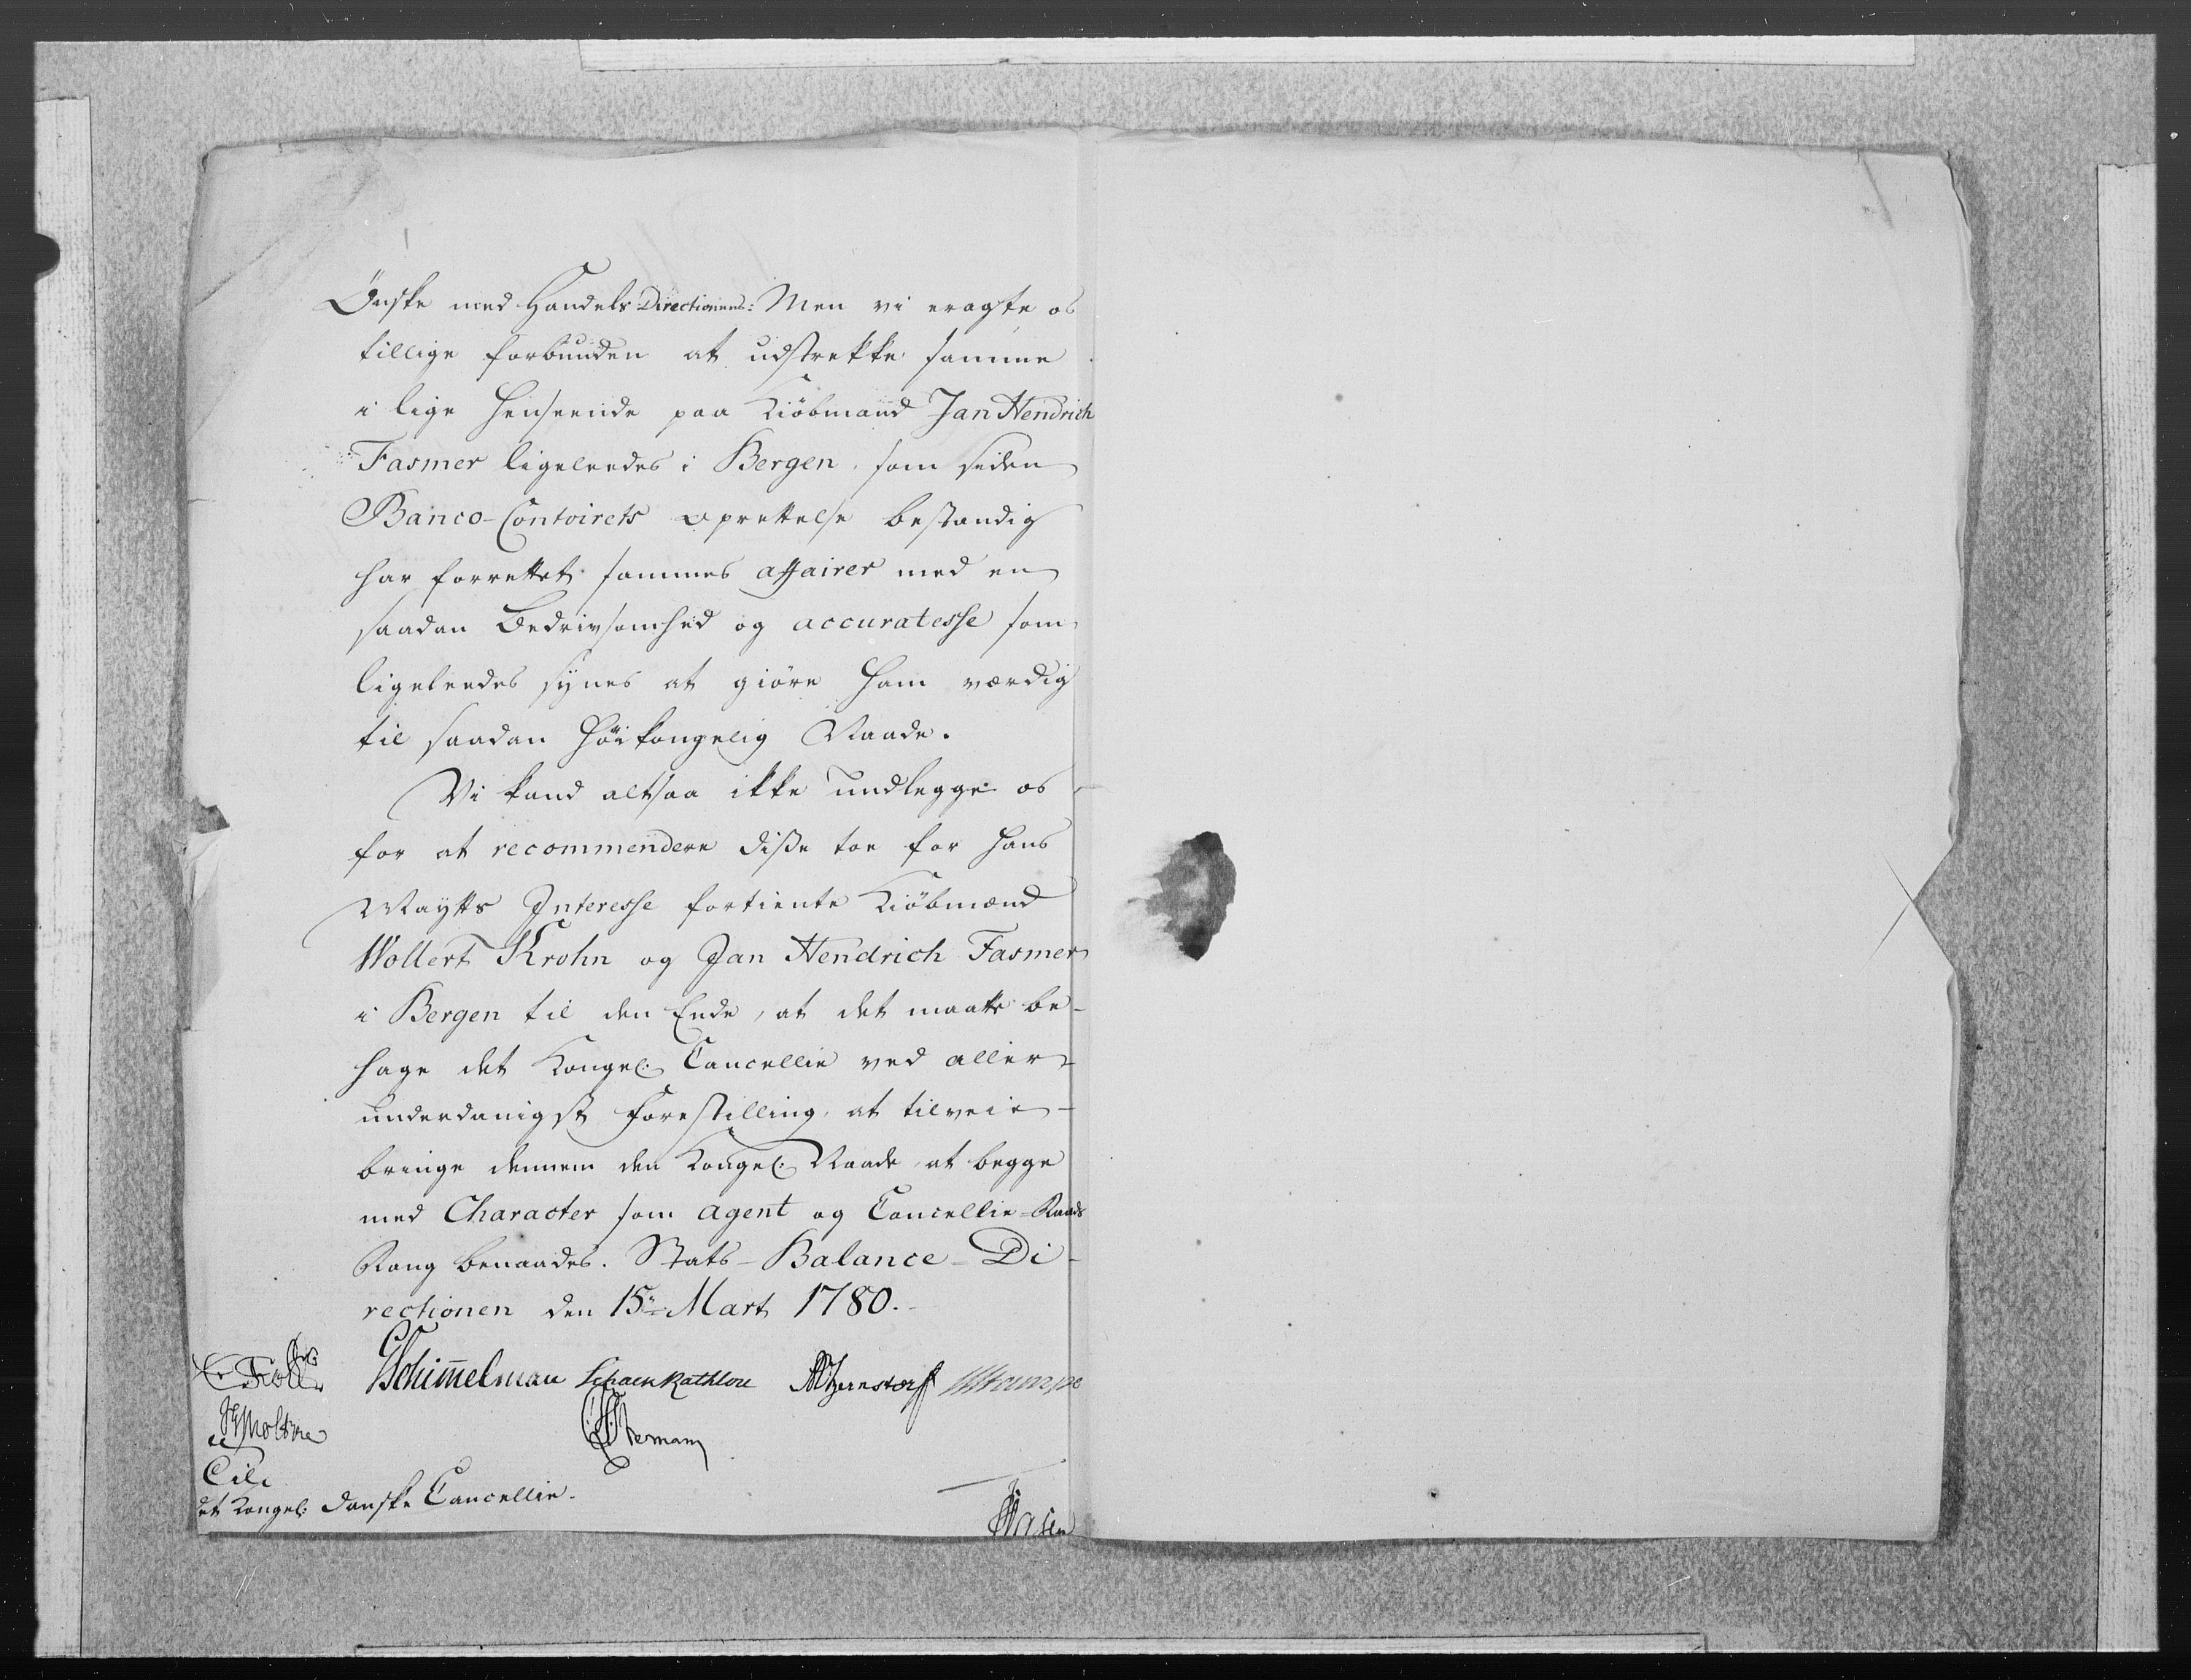 Ønske med Handels Directionens: Men vi eragte os
tillige forbunden at udstrekke samme
i lige Henseende paa Kiöbmand Jan Hendrich
Fasmer ligeleedes i Bergen, som siden
Banco-Contoirets oprettelse bestandig
har forrettet sammes affairer med en
saadan Bedrivsomhed og accuratesse som
ligeleedes synes at giöre ham værdig
til saadan Höikongelig Naade.
Vi kand altsaa ikke undlegge os
for at recommendere disse toe for Hans
Maytts Interesse fortiente Kiöbmænd
Wollert Krohn og Jan Hendrich Fasmer
i Bergen til den Ende, at det maatte be-
hage det Kongel: Cancellie ved aller-
underdanigst Forestilling, at tilveie-
bringe dennem den Kongel: Naade, at begge
med Character som agent og Cancellie-Raads
Rang benaades. Stats-Balance-Di-
rectionen den 15de Mart 1780.
Schimmelman Schack Rathlou Bernstorff Stampe
Moltke Stemann
Til
det Kongel: Danske Cancellie.